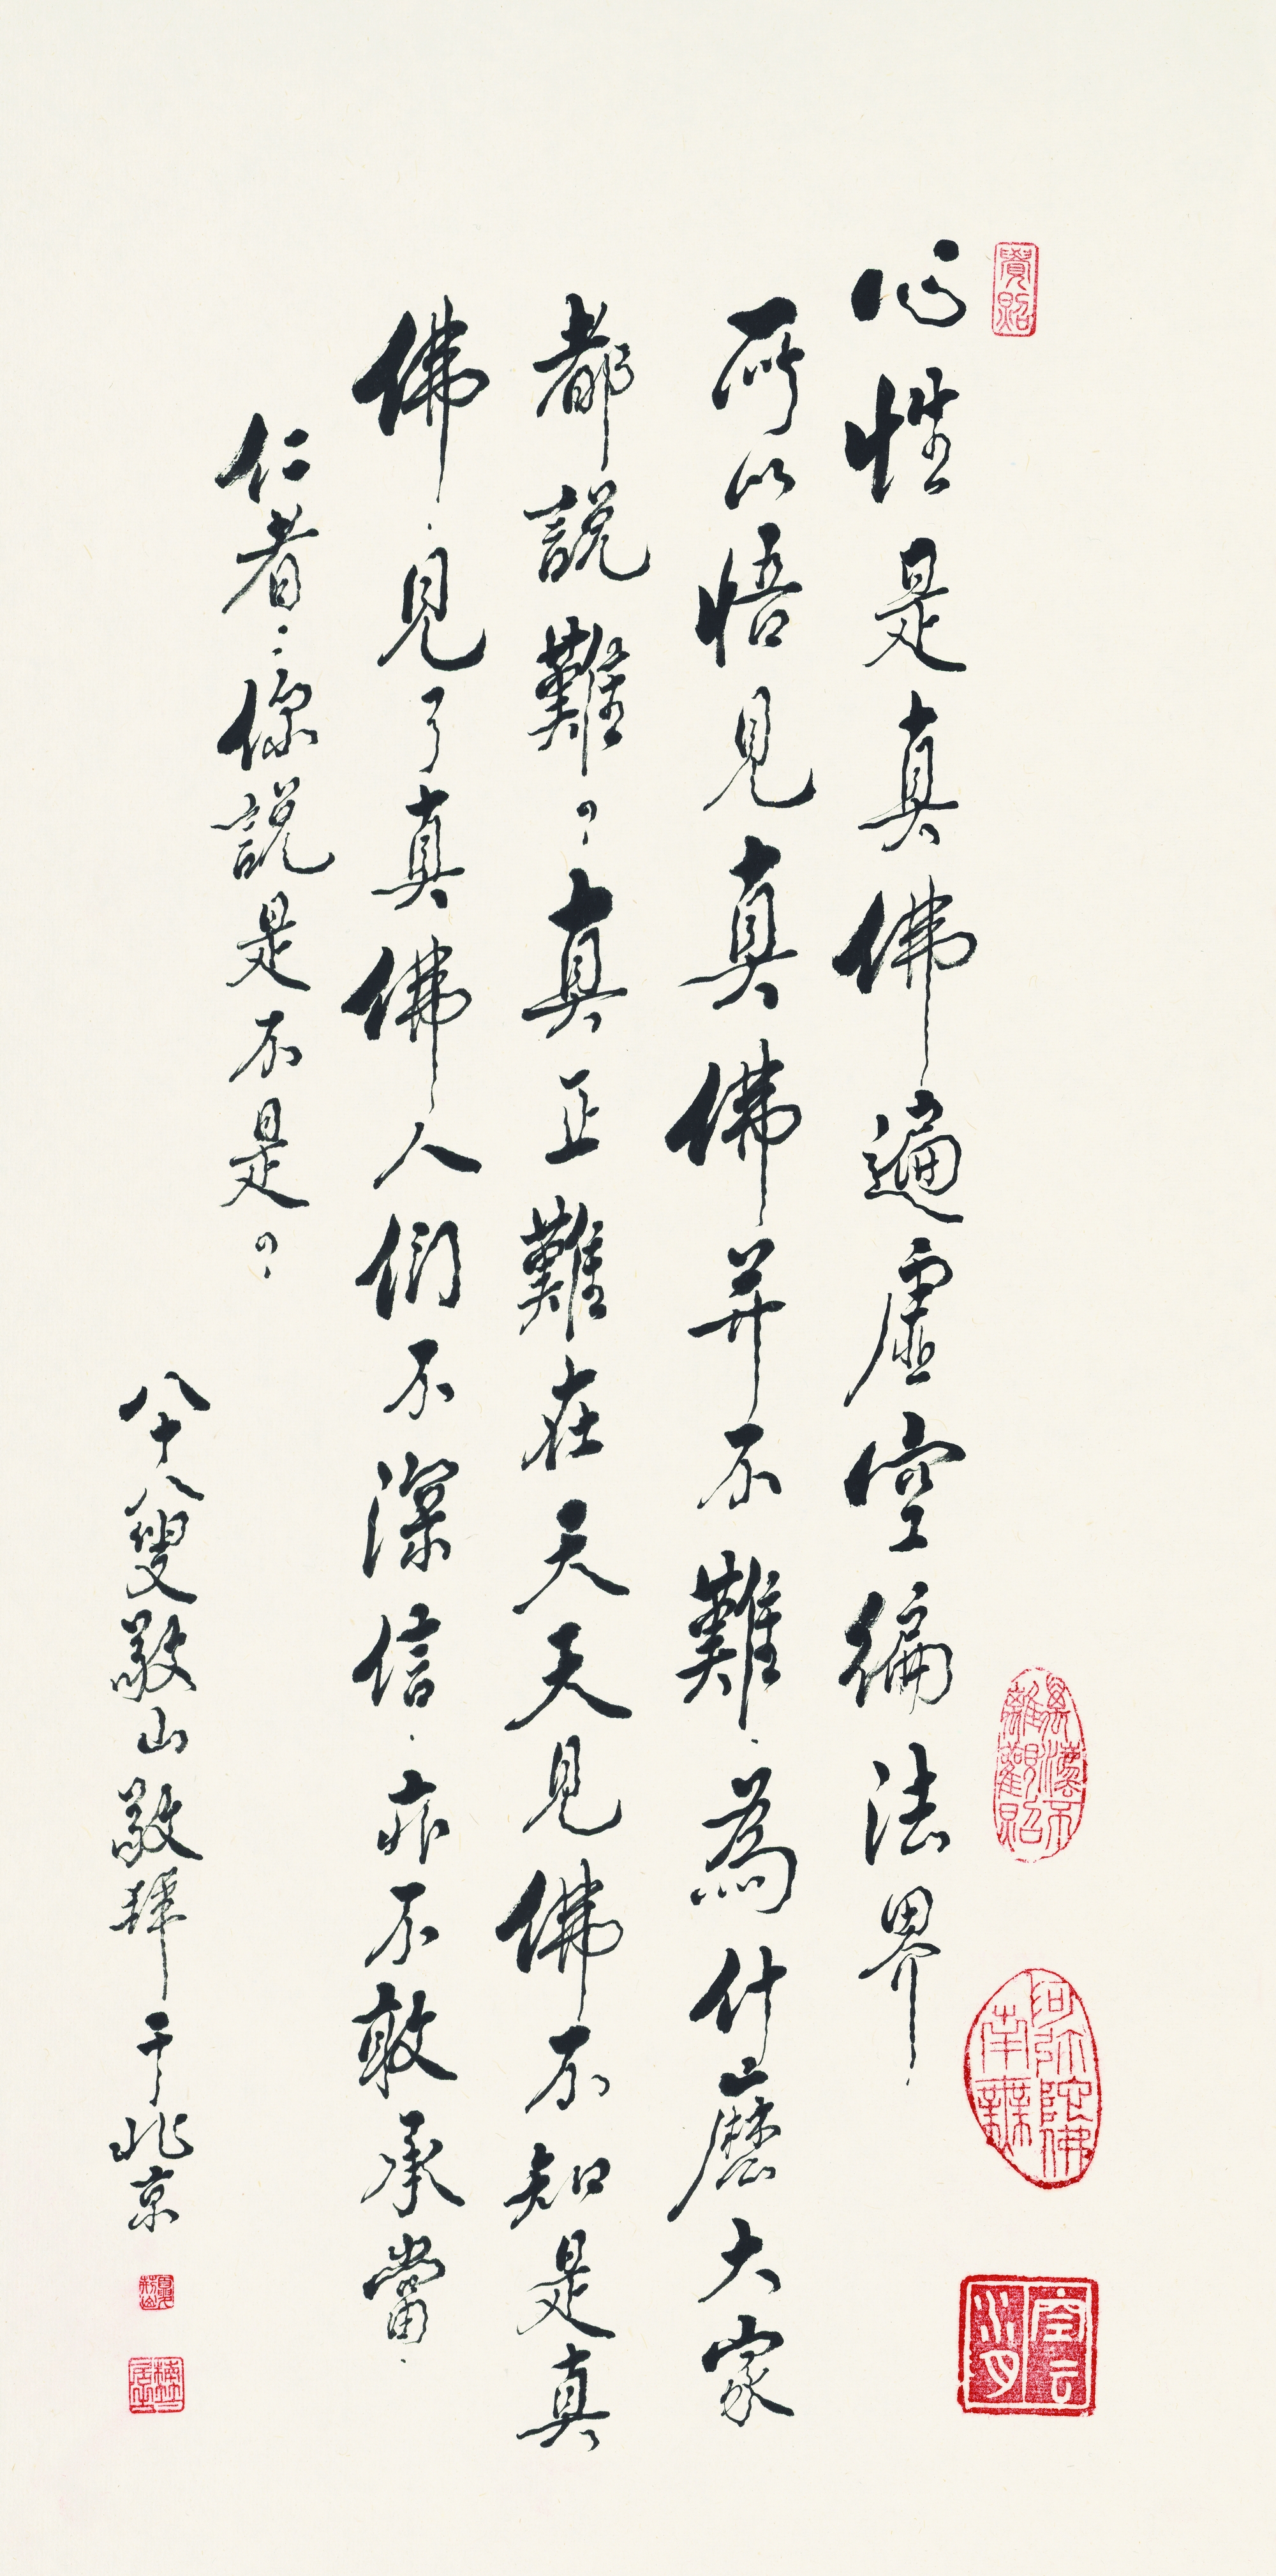 心性是真佛遍虛空徧法界
所以悟見真佛并不難.為什麼大家
都說難?真正難在天天見佛不知是真
佛.見了真佛人們不深信.亦不敢承當.
仁者:你說是不是?
八十八叟敬山敬拜于北京
覺照
南無阿弥陀佛